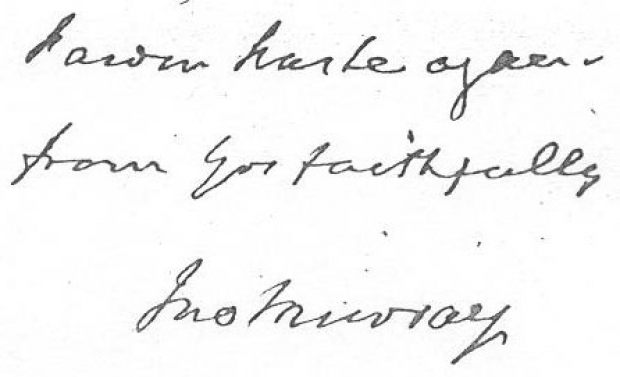 haste again -
from Yrs faithfully
Jno Murray